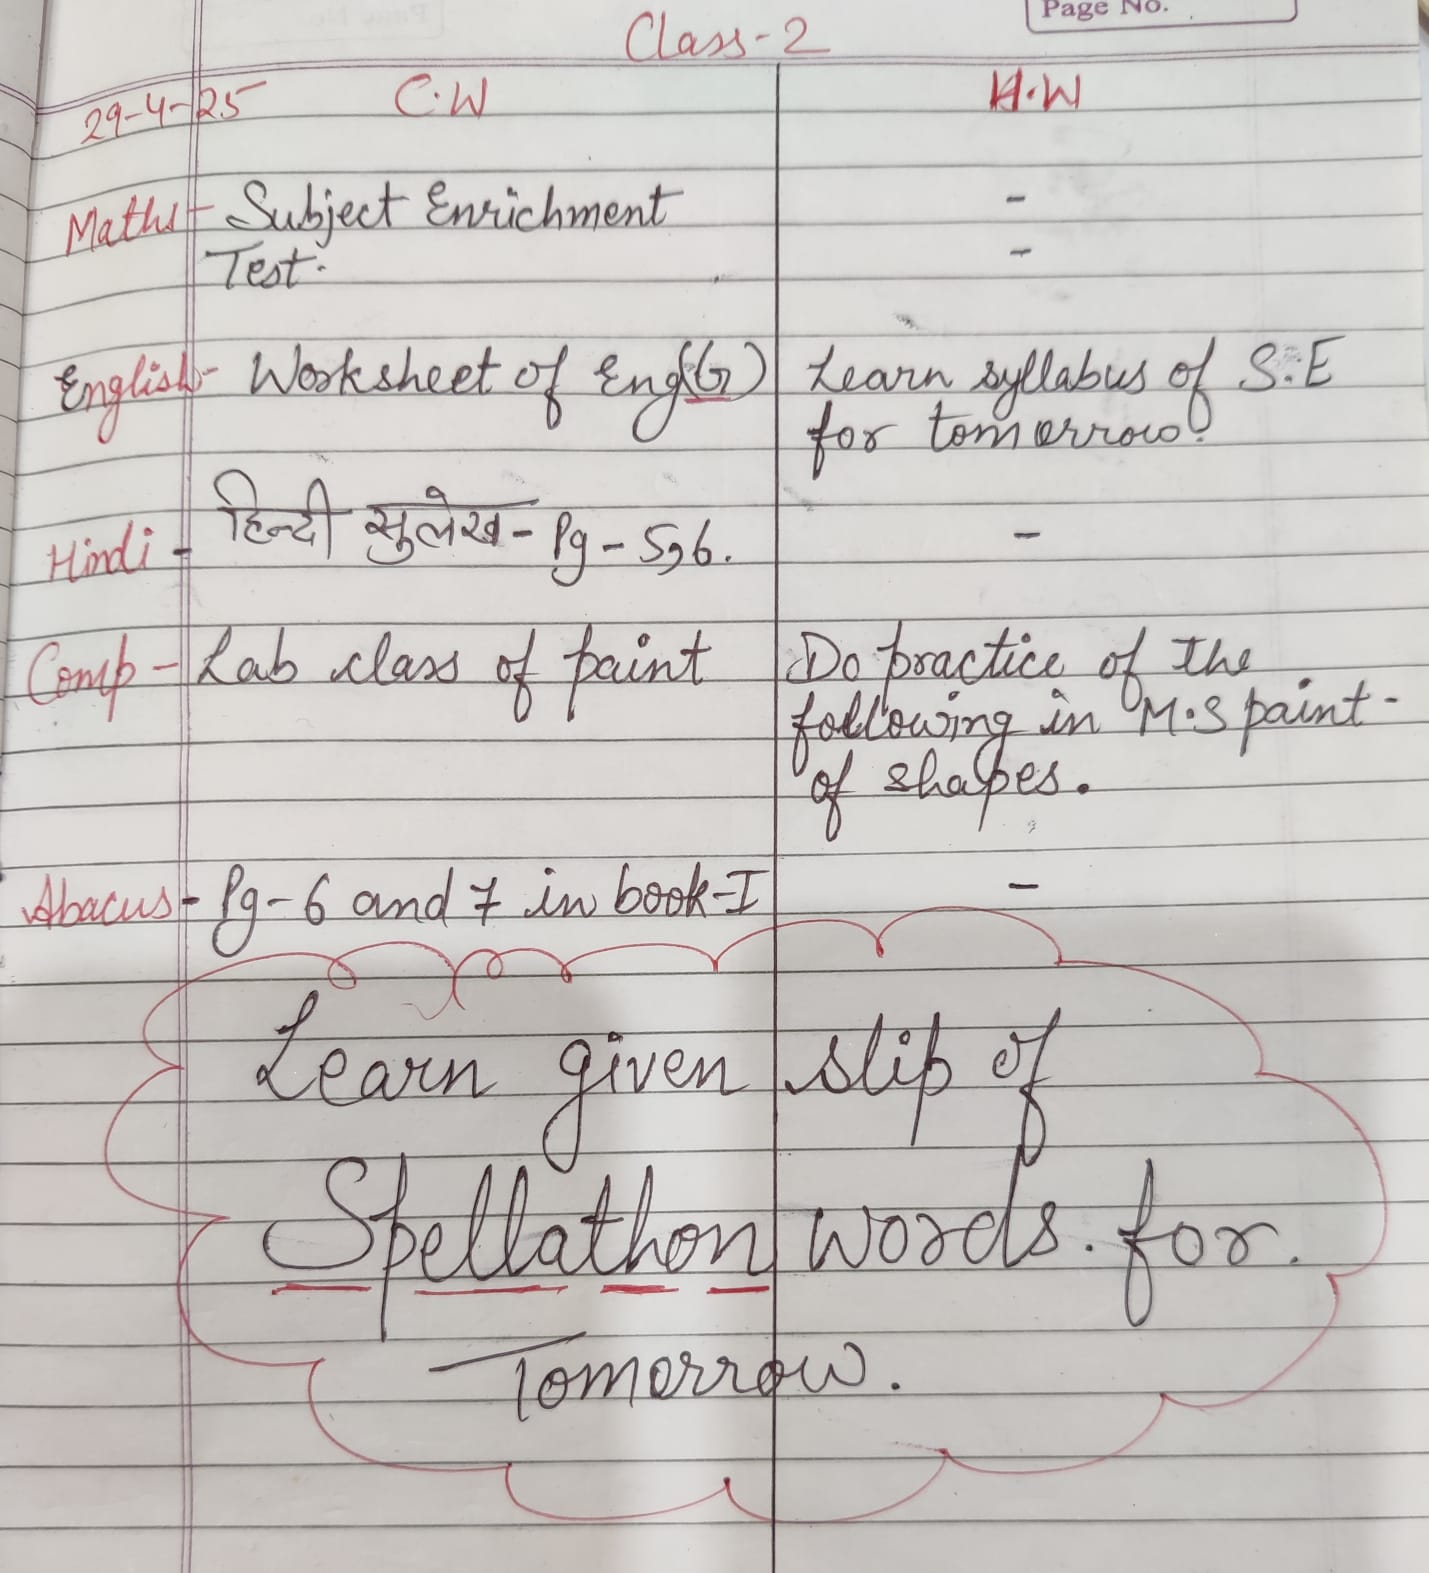 Page No.
Class-2
29-4-25 C.W H.W
Maths- Subject Enrichment -
Test. -
English- Worksheet of Eng(G) Learn syllabus of S.E
for tomorrow.
Hindi - हिन्दी सुलेख - Pg - 5,6. -
Comp - Lab class of paint Do practice of the
following in M.S paint -
of shapes.
Abacus - Pg-6 and 7 in book-I -
Learn given slip of
Spellathon words. for.
Tomorrow.